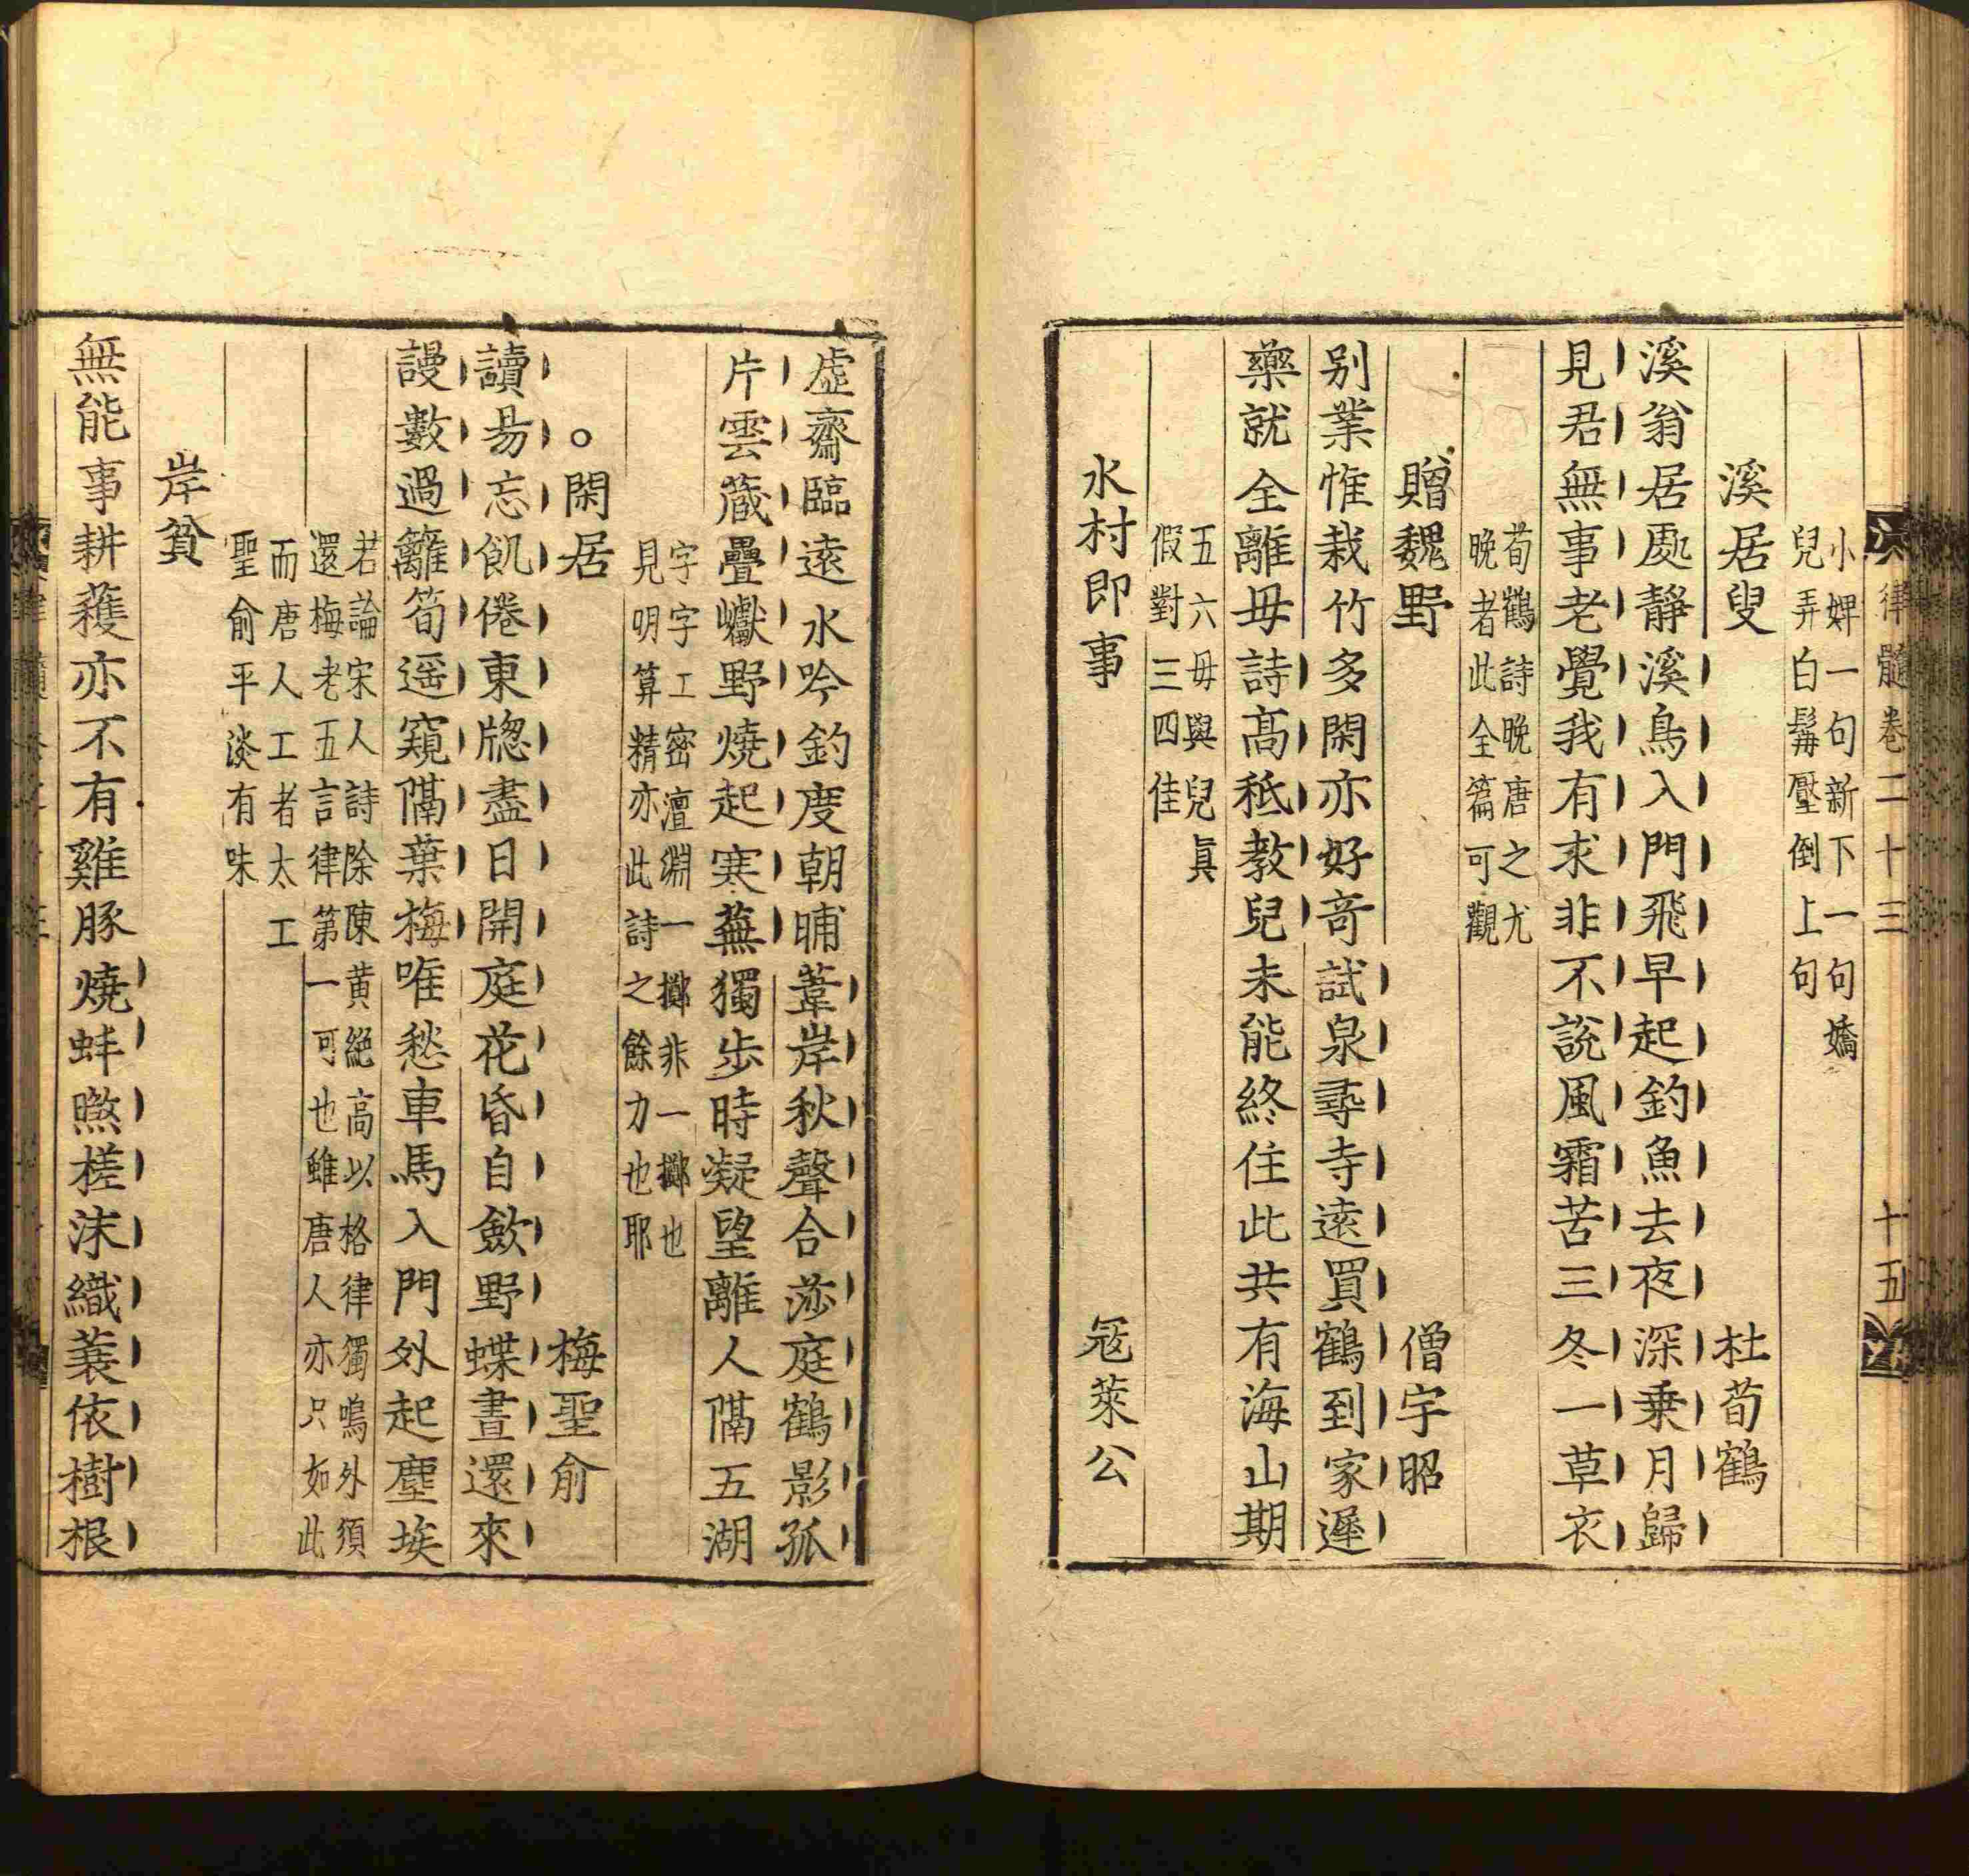 律髓卷二十三
十五
小婢一句新下一句嬌
兒弄白鬅壓倒上句
溪居叟
杜荀鶴
溪翁居處靜溪鳥入門飛早起釣魚去夜深乗月歸
見君無事老覺我有求非不說風霜苦三冬一草衣
荀鶴詩晚唐之尤
晚者此全篇可觀
贈魏野
僧宇昭
别業惟栽竹多閑亦好竒試泉尋寺逺買鶴到家遲
藥就全離母詩髙秪教兒未能終住此共有海山期
五六毋與兒真
假對三四佳
水村即事
宼萊公
虚齋臨逺水吟釣度朝晡葦岸秋聲合莎庭鶴影孤
片雲藏疊巘野燒起寒蕪獨步時凝望離人隔五湖
字字工密澶淵一擲非一擲也
見明算精亦此詩之餘力也耶
閑居
梅聖俞
讀易忘飢倦東牕盡日開庭花昏自斂野蝶晝還來
謾數過籬筍遥窺隔葉梅唯愁車馬入門外起塵埃
若論宋人詩除陳黄絶高以格律獨鳴外須
還梅老五言律第一可也雖唐人亦只如此
而唐人工者太工
聖俞平淡有味
岸貧
無能事耕穫亦不有雞豚燒蚌㬠槎沫織蓑依樹根